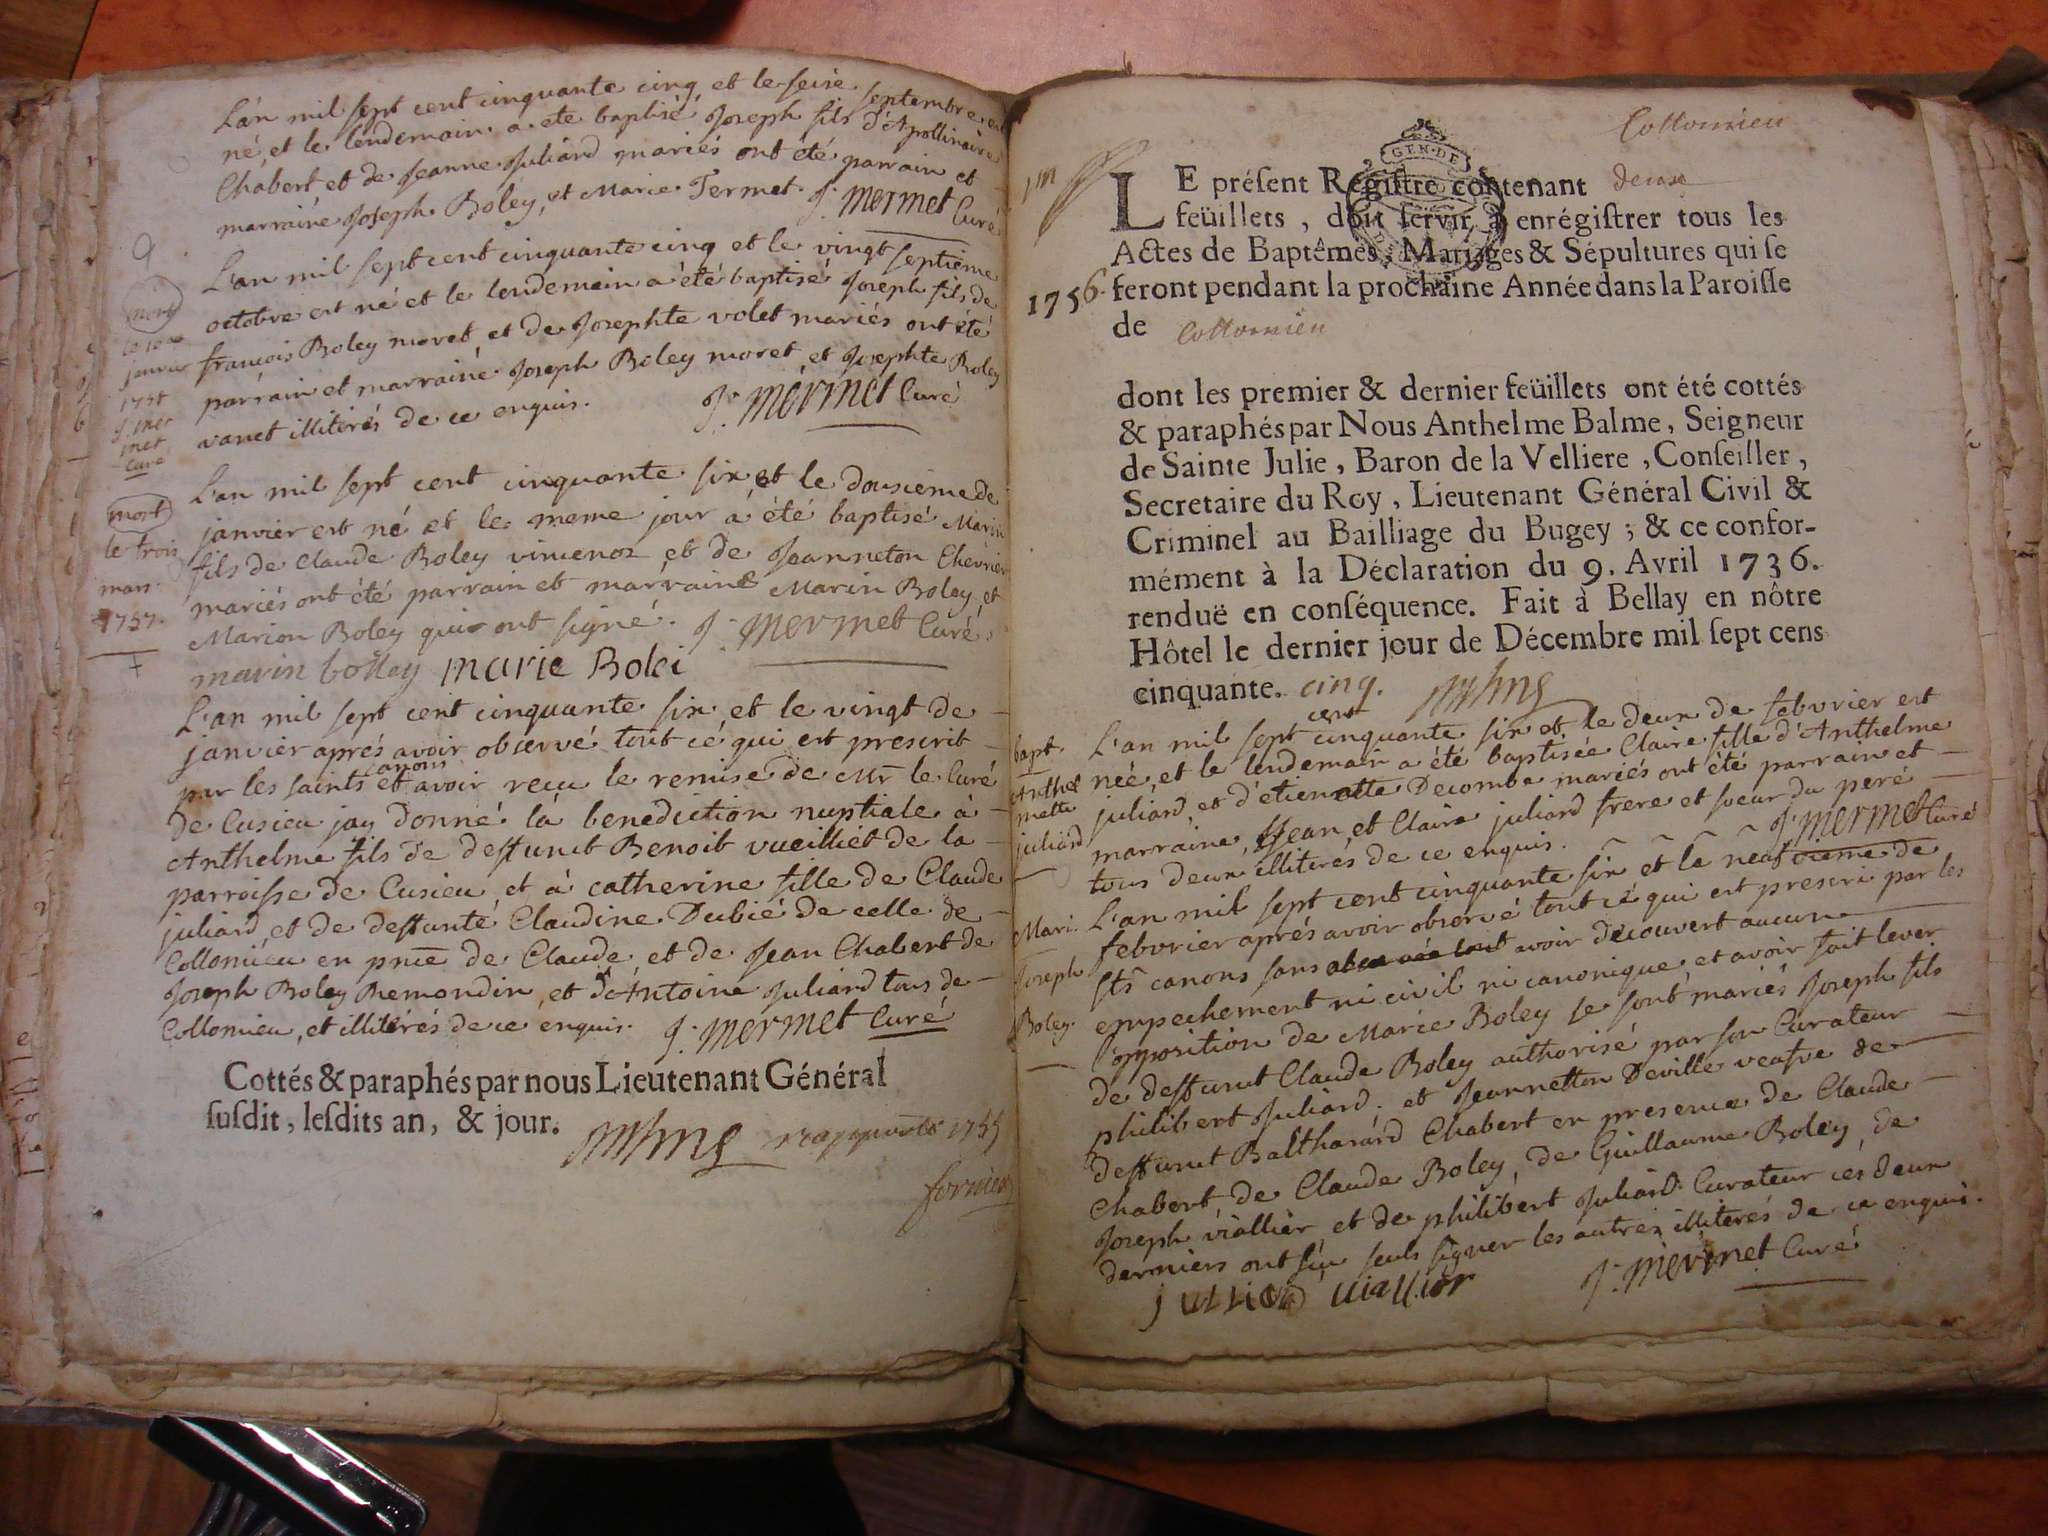 L'an mil sept cent cinquante cinq et le seise septembre est
né, et le lendemain a ete baptisé Joseph fils d'Apollinaire
Chabert et de Jeanne Juliard mariés ont été parrain et
marraine Joseph Boley, et Marie Termet J. Mermet Curé
L'an mil sept cent cinquante cinq et le vingt septieme
octobre est né et le lendemain a été baptisé Joseph fils de
francois Boley moret et de Josephte volet mariés ont été
parrain et marraine Joseph Boley moret et Josephte Boley
vanet illiterés de ce enquis. J. Mermet Curé
mort
janvier
J. Mer
met
curé
L'an mil sept cent cinquante six et le dousieme de
janvier est né et le meme jour a été baptisé Marin
fils de Claude Boley vincenoz et de Jeanneton Chevrier
mariés ont été parrain et marraine Marin Boley et
Marion Boley qui ont signé. J. Mermet Curé
mort
le trois
mars
1757.
marin bolley marie Bolei
L'an mil sept cent cinquante six et le vingt de
janvier aprés avoir observé tout cé qui est prescrit
par les saints canons et avoir recu le remise de Mr le Curé
de Cusieu jay donné la benediction nuptiale à
Anthelme fils de deffunct Benoit vueilliet de la
parroisse de Cusieu, et à catherine fille de Claude
juliard, et de deffunte Claudine Dubié de celle de
Collomieu en pnce de Claude et de Jean Chabert de
Joseph Boley Remondin, et d'Antoine Juliard tous de
Collomieu, et illiterés de ce enquis. J. Mermet Curé
Cottés & paraphés par nous Lieutenant Général
ſuſdit, leſdits an, & jour.
1755
Collomieu
LE préſent Regiſtre contenant deux
feüillets, doit ſervir à enrégiſtrer tous les
Actes de Baptêmes, Mariages & Sépultures qui ſe
1756. feront pendant la prochaine Année dans la Paroiſſe
de Collomieu
dont les premier & dernier feüillets ont été cottés
& paraphés par Nous Anthelme Balme, Seigneur
de Sainte Julie, Baron de la Velliere, Conſeiller,
Secretaire du Roy, Lieutenant Général Civil &
Criminel au Bailliage du Bugey; & ce confor-
mément à la Déclaration du 9. Avril 1736.
renduë en conſéquence. Fait à Bellay en nôtre
Hôtel le dernier jour de Décembre mil ſept cens
cinquante. cinq.
bapt.
Anthel
mette
juliard
L'an mil sept cent cinquante six et le deux de febvrier est
née, et le lendemain a été baptisée Claire fille d'Anthelme
juliard, et d'etienette Decombe mariés ont été parrain et
marraine, Jean, et Claire juliard frere et soeur du pere
tous deux illiterés de ce enquis. J. Mermet Curé
Mari.
Joseph
Boley.
L'an mil sept cent cinquante six et le neufvieme de
febvrier aprés avoir observé tout cé qui est prescri par les
sts canons sans avoir découvert aucun
empechement ni civil ni canonique, et avoir fait lever
l'opposition de Marie Boley se sont mariés Joseph fils
de deffunct Claude Boley authorisé par son Curateur
philibert Juliard. et Jeannetton Deville veufve de
deffunct Balthazard Chabert en presence de Claude
Chabert, de Claude Boley, de Guillaume Boley, de
Joseph viallier, et de philibert Juliard Curateur ces deux
derniers ont sçu seuls signer les autres illiterés de ce enquis.
J. Mermet Curé